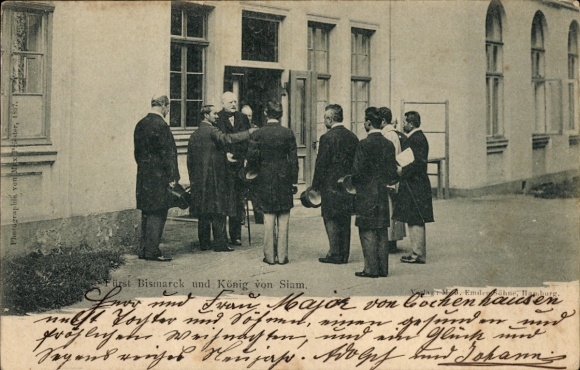 Fürst Bismarck und König von Siam.
Herr und Frau Major von Cochenhausen
nebst Tochter und Söhnen, einen gesunden und
fröhlichen Weihnachten, und ein Glück und
Segensreiches Neujahr. Adolph und Johanna
Photographie von 1897.
Verlag: Hamburg.